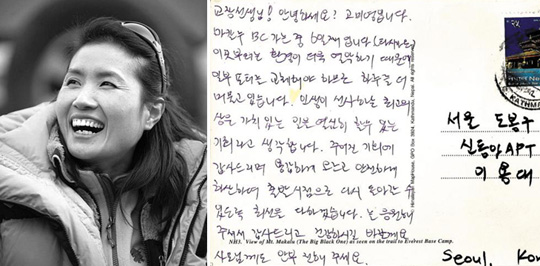 교장선생님! 안녕하세요? 고미영입니다.
마칼루 BC 가는 중 6일째 입니다
이곳부터는 환경이 더욱 열악하기 때문에
고려해야 하므로 하루를 더
머물고 있습니다. 인생이 선사하는 최고의
가치 있는 일은 열심히 할수 있는
기회라고 생각합니다. 주어진 기회에
감사드리며 용감하게 오르고 안전하게
하산하여 출발지점으로 다시 돌아갈 수
있도록 최선을 다하겠습니다. 늘 응원해
주셔서 감사드리고 건강하시길 바랄게요
사모님께도 안부 전해 주세요.
NH3. View of Mt. Makalu (The Big Black One) as seen on the trail to Everest Base Camp.
KATHM
서울 도봉구
신동아APT
이용대
Seoul. Ko